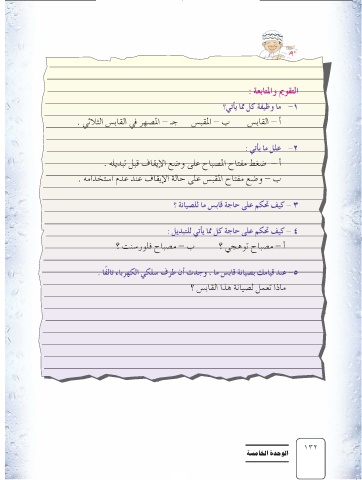 التقويم والمتابعة :
١- ما وظيفة كل مما يأتي؟
أ – القابس ب – المقبس جـ – المصهر في القابس الثلاثي .
٢- علل ما يأتي :
أ – ضغط مفتاح المصباح على وضع الإيقاف قبل تبديله .
ب – وضع مفتاح المقبس على حالة الإيقاف عند عدم استخدامه .
٣ – كيف تحكم على حاجة قابس ما للصيانة ؟
٤ – كيف تحكم على حاجة كل مما يأتي للتبديل :
أ – مصباح توهجي ؟ ب – مصباح فلورسنت ؟
٥- عند قيامك بصيانة قابس ما ، وجدت أن طرف سلكي الكهرباء تالفًا .
ماذا تعمل لصيانة هذا القابس ؟
الوحدة الخامسة
١٣٢